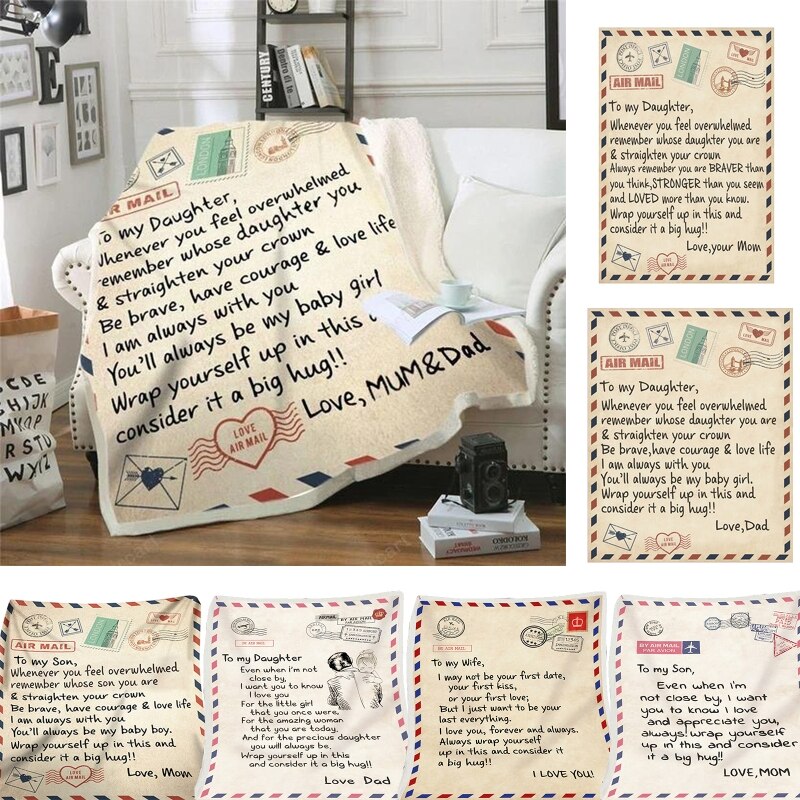 CENTURY
Dentro di te
LONDON
R MAIL
To my Daughter,
Whenever you feel overwhelmed
remember whose daughter you
& straighten your crown
Be brave, have courage & love life
I am always with you
You'll always be my baby girl
Wrap yourself up in this
consider it a big hug!!
Love, MUM&Dad
LOVE
AIR MAIL
CDE
HIJK
MNOP
RSTU
WXYZ
KOLODKO
AIR MAIL
LONDON
LOVE MAIL
To my Daughter,
Whenever you feel overwhelmed
remember whose daughter you are
& straighten your crown
Always remember you are BRAVER than
you think,STRONGER than you seem
and LOVED more than you know.
Wrap yourself up in this and
consider it a big hug!!
Love,your Mom
LOVE
AIR MAIL
AIR MAIL
LONDON
LOVE MAIL
To my Daughter,
Whenever you feel overwhelmed
remember whose daughter you are
& straighten your crown
Be brave,have courage & love life
I am always with you
You'll always be my baby girl.
Wrap yourself up in this and
consider it a big hug!!
Love,Dad
LOVE
AIR MAIL
AIR MAIL
LONDON
To my Son,
Whenever you feel overwhelmed
remember whose son you are
& straighten your crown
Be brave, have courage & love life
I am always with you
You'll always be my baby boy.
Wrap yourself up in this and
consider it a big hug!!
Love, Mom
LOVE
AIR MAIL
BY AIR MAIL
To my Daughter
Even when i'm not
close by,
I want you to know
I love you
For the little girl
that you once were,
For the amazing woman
that you are today,
And for the precious daughter
you will always be,
Wrap yourself up in this
and consider it a big hug!!
Love Dad
To my Wife,
I may not be your first date,
your first kiss,
or your first love;
But I just want to be your
last everything.
I love you, forever and always.
Always wrap yourself
up in this and consider it
a big hug!!
I LOVE YOU!
BY AIR MAIL
PAR AVION
To my Son,
Even when i'm
not close by, I want
you to know I love
and appreciate you,
always! wrap yourself
up in this and consider
it a big hug!!
LOVE,MOM